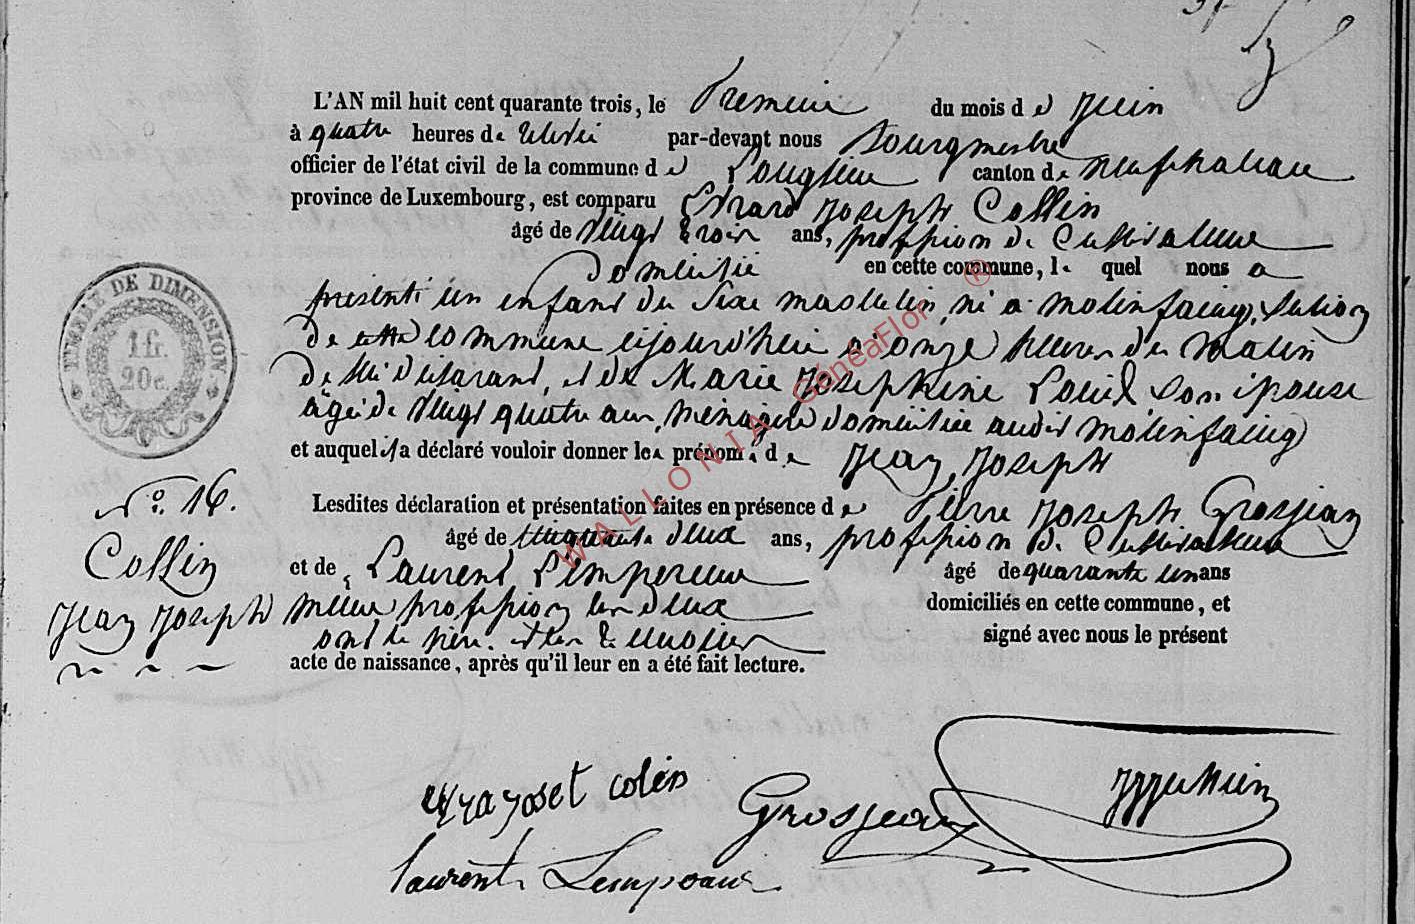 L'AN mil huit cent quarante trois, le Premier du mois de Juin
à quatre heures de relevée par-devant nous Bourgmestre
officier de l'état civil de la commune de Longlier canton de Neufchateau
province de Luxembourg, est comparu Evrard Joseph Collin
âgé de vingt trois ans, profession de Cultivateur
Domicilié en cette commune, le quel nous a
présenté un enfant du sexe masculin, né à Molinfaing, section
de cette commune cejourd'hui à onze heures du Matin
de lui Déclarant, et de Marie Josephine son épouse
âgée de vingt quatre ans, Ménagère domiciliée audit Molinfaing
et auquel il a déclaré vouloir donner les prénoms de Jean Joseph
No. 16.
Collin
Jean Joseph
Lesdites déclaration et présentation faites en présence de Pierre Joseph Grosjean
âgé de cinquante deux ans, profession de Cultivateur
et de Laurent Lempereur âgé de quarante un ans
même profession tous deux domiciliés en cette commune, et
ont le père et les témoins signé avec nous le présent
acte de naissance, après qu'il leur en a été fait lecture.
joset colin
Grosjean
laurent Lempereur
TIMBRE DE DIMENSION
1 fr.
20 c.
WALLONIA GénéaFlor ®